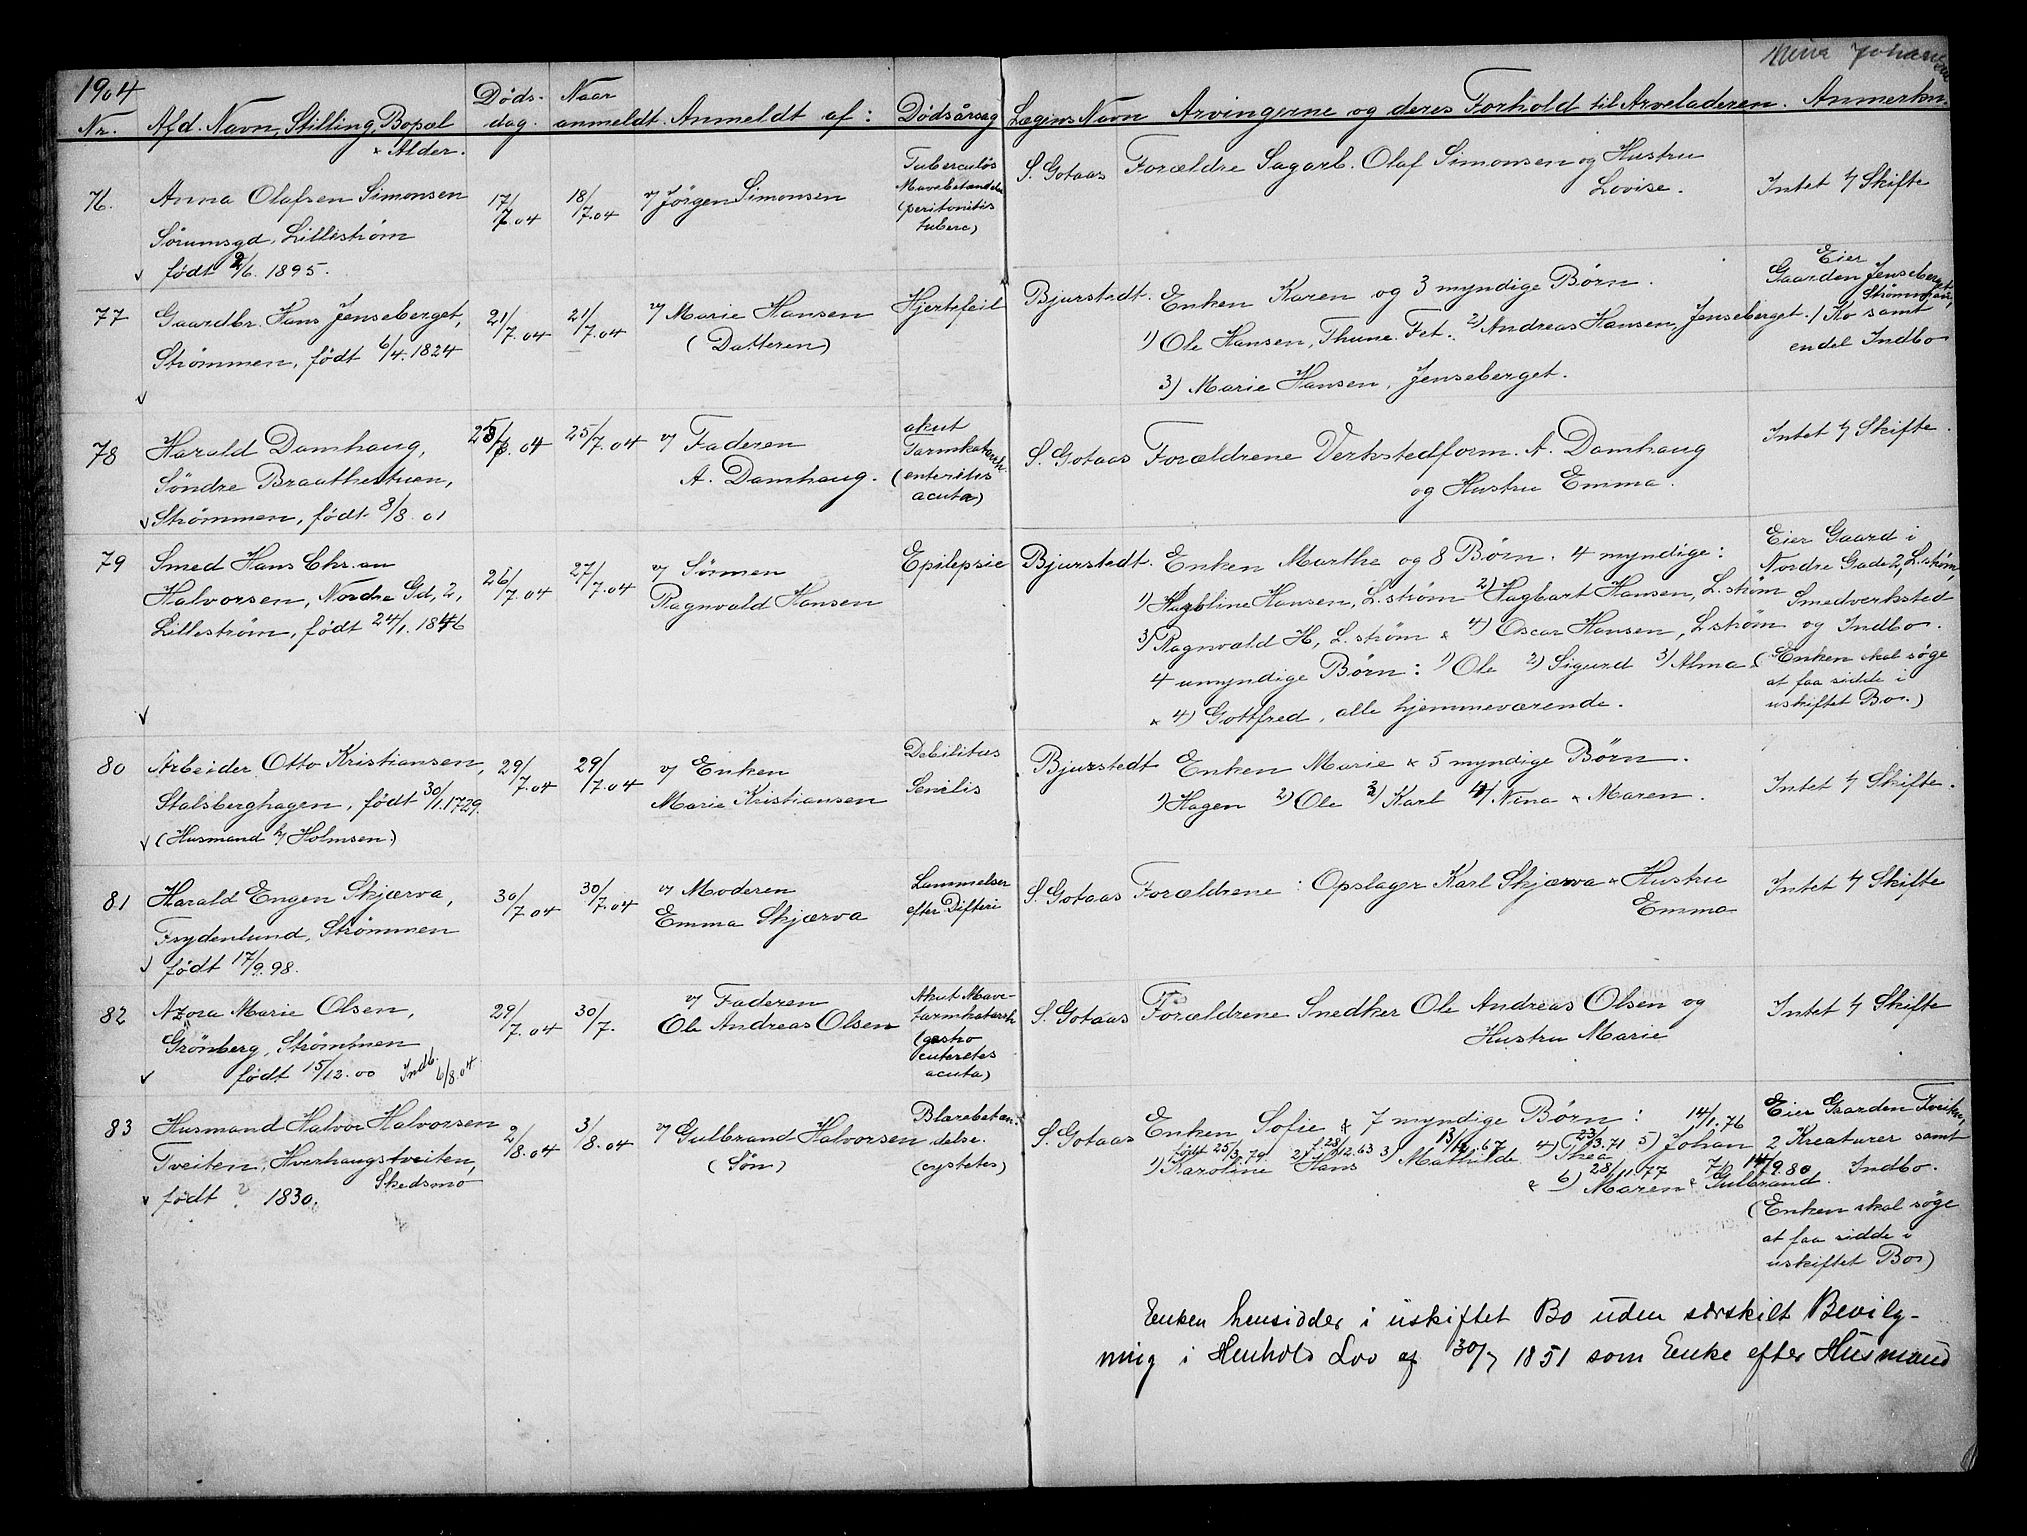 1904
Nr. Afd. Navn, Stilling, Bopæl Døds- Naar
& Alder. dag. anmeldt. Anmeldt af: Dødsårsag Lægens Navn Arvingerne og deres Forhold til Arveladeren. Anmerkn.
Johansen
76. Anna Olafsen Simonsen 17/7.04 18/7.04 v/ Jørgen Simonsen
Sørumsgd, Lillestrøm
født 2/6. 1895.
Tuberculøs
Mavebetændelse
(peritonitis
tuberc)
S. Gotaas Forældre Sagarb. Olaf Simonsen og Hustru
Lovise.
Intet t/ Skifte
77 Gaardbr. Hans Jenseberget, 21/7.04 21/7.04 v/ Marie Hansen Hjertefeil
Strømmen, født 6/4. 1824 (Datteren)
Bjurstedt. Enken Karen og 3 myndige Børn.
1) Ole Hansen, Thune. Fet. 2) Andreas Hansen, Jenseberget.
3) Marie Hansen, Jenseberget.
Eier
Gaarden Jenseberget,
Strømmen,
1 Ko samt
endel Indbo
78 Harald Damhaug, 25/7.04 25/7.04 v/ Faderen
Søndre Braathestuen, A. Damhaug.
Strømmen, født 8/8.01
akut
Tarmkatarrh.
(enteritis
acuta)
S. Gotaas Forældrene Verkstedform. A. Damhaug
og Hustru Emma.
Intet t/ Skifte.
79 Smed Hans Chr.an 26/7.04 27/7.04 v/ Sønnen Epilepsie
Halvorsen, Nordre Gd, 2, Ragnvald Hansen
Lillestrøm, født 24/1. 1846
Bjurstedt. Enken Marthe og 8 Børn. 4 myndige:
1) Hagbline Hansen, L.strøm 2) Hagbart Hansen, L.strøm
3) Ragnvald H, L.strøm & 4) Oscar Hansen, Lstrøm
4 umyndige Børn: 1) Ole 2) Sigurd 3) Alma
& 4) Gottfred, alle hjemmeværende.
Eier Gaard i
Nordre Gade 2, L.strøm,
Smedverksted
og Indbo.
(Enken skal søge
at faa sidde i
uskiftet Bo.)
80 Arbeider Otto Kristiansen, 29/7.04 29/7.04 v/ Enken Debilitas
Stalsberghagen, født 30/1.1729. Marie Kristiansen Senilis
(Husmand u/ Holmsen)
Bjurstedt Enken Marie & 5 myndige Børn.
1) Hagen 2) Ole 3) Karl 4) Nina & Maren.
Intet t/ Skifte.
81 Harald Engen Skjærva, 30/7.04 30/7.04 v/ Moderen Lammelser
Frydenlund, Strømmen Emma Skjærva efter Difteri
født 17/9.98.
S. Gotaas Forældrene: Opslager Karl Skjærva & Hustru
Emma
Intet t/ Skifte
82 Azora Marie Olsen, 29/7.04 30/7. v/ Faderen
Grønberg, Strømmen Ole Andreas Olsen
født 15/12.00 Indb. 6/8.04
Akut Mave-
tarmkatarrh
(gastro
enteretes
acuta)
S. Gotaas Forældrene Snedker Ole Andreas Olsen og
Hustru Marie
Intet t/ Skifte
83 Husmand Halvor Halvorsen 2/8.04 3/8.04 v/ Gulbrand Halvorsen
Tveiten, Hverhaugstveiten, (Søn)
Skedsmo
født ? 1830.
Blærebetæn-
delse.
(cystetes)
S. Gotaas Enken Sofie & 7 myndige Børn: 14/1.76
født 25/3.79 28/12.63 23/3.71
1) Karoline 2) Hans 3) Mathilde 4) Thea 5) Johan
28/11.77 14/9.80
& 6) Maren & 7) Gulbrand.
Eier Gaarden Tveiten,
2 Kreaturer samt
Indbo.
(Enken skal søge
at faa sidde i
uskiftet Bo)
Enken hensidder i uskiftet Bo uden særskilt Bevilg-
ning i Henhold Lov af 30/7 1851 som Enke efter Husmand